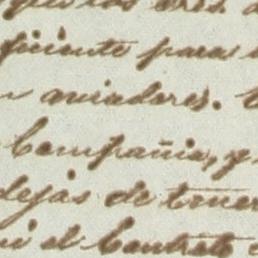 ficiente para
aviadores.
Compañia, y
dejas de tener
el Contrato